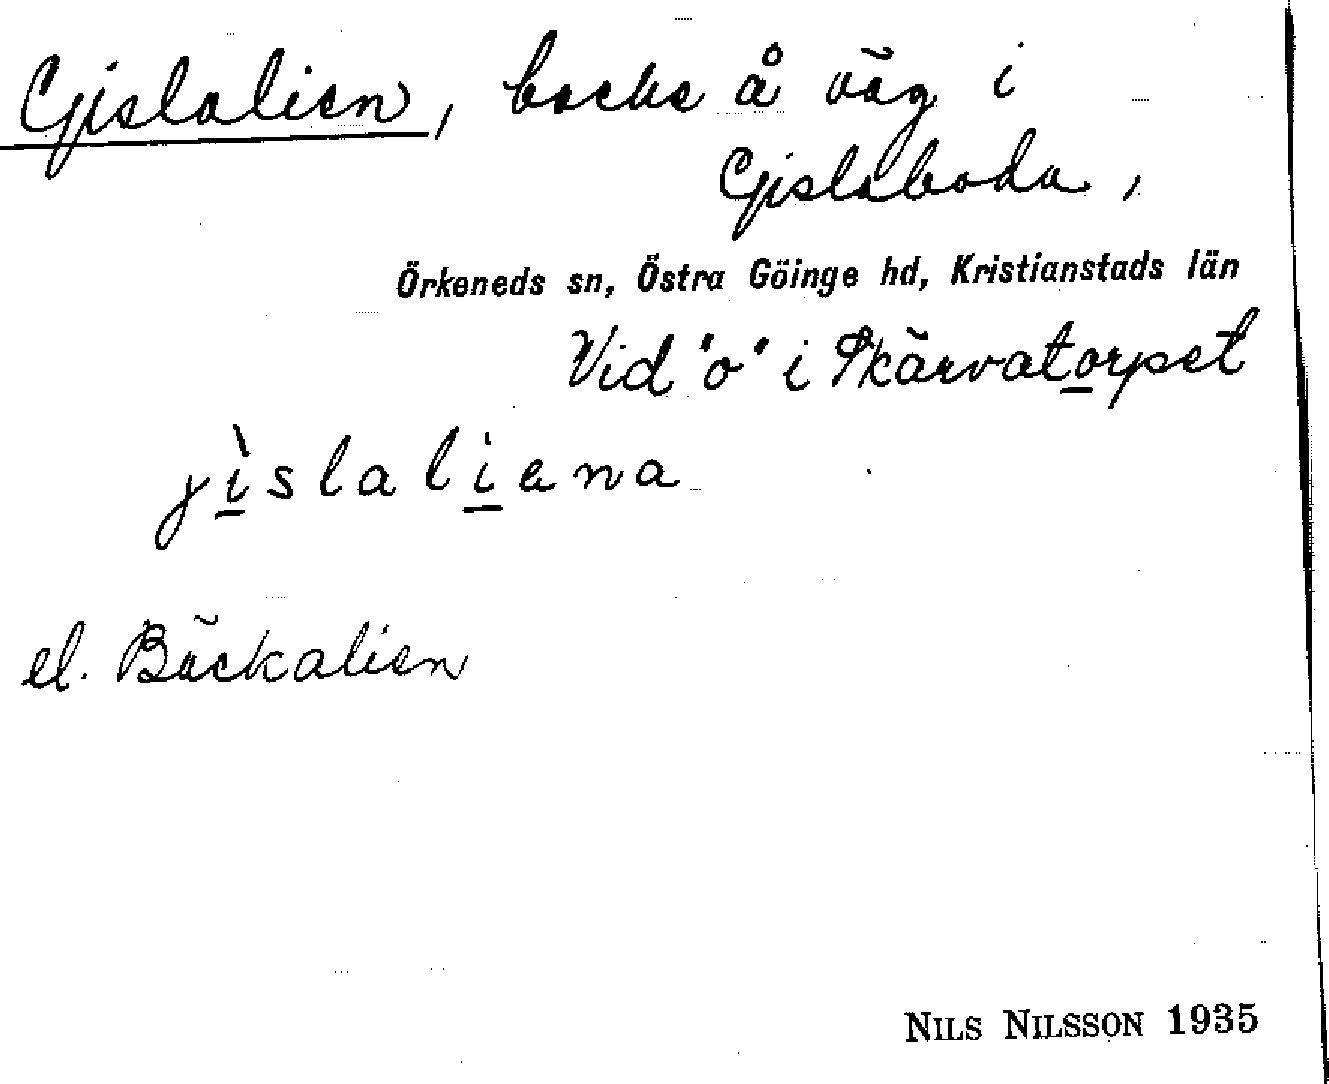 Gislalien, backe å väg i
Gislaboda,
Örkeneds sn, Östra Göinge hd, Kristianstads län
Vid "o" i Skärvatorpet
jìslaliena
el. Bäckalien
NILS NILSSON 1935